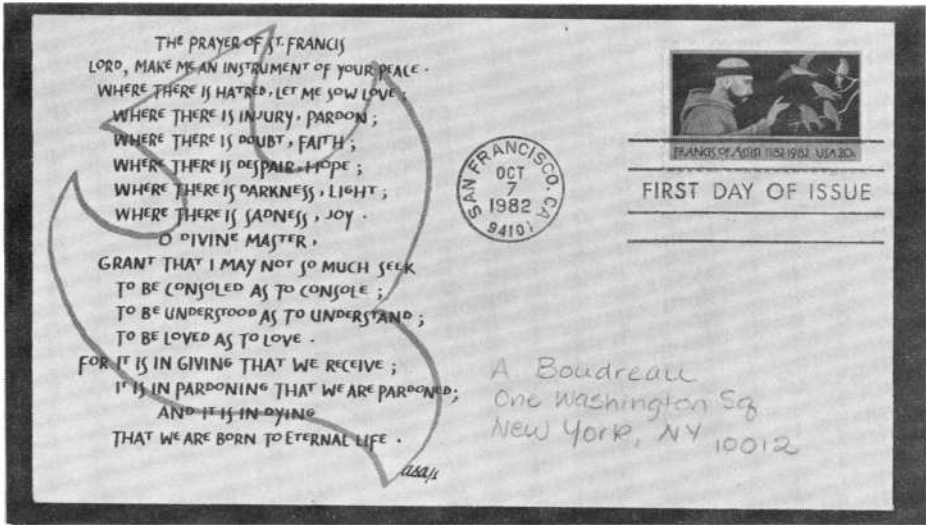 THE PRAYER OF ST. FRANCIS
LORD, MAKE ME AN INSTRUMENT OF YOUR PEACE.
WHERE THERE IS HATRED, LET ME SOW LOVE;
WHERE THERE IS INJURY, PARDON;
WHERE THERE IS DOUBT, FAITH;
WHERE THERE IS DESPAIR, HOPE;
WHERE THERE IS DARKNESS, LIGHT;
WHERE THERE IS SADNESS, JOY.
O DIVINE MASTER,
GRANT THAT I MAY NOT SO MUCH SEEK
TO BE CONSOLED AS TO CONSOLE;
TO BE UNDERSTOOD AS TO UNDERSTAND;
TO BE LOVED AS TO LOVE.
FOR IT IS IN GIVING THAT WE RECEIVE;
IT IS IN PARDONING THAT WE ARE PARDONED;
AND IT IS IN DYING
THAT WE ARE BORN TO ETERNAL LIFE.
SAN FRANCISCO, CA
OCT
7
1982
94101
FRANCIS OF ASSISI 1182-1982 USA 20c
FIRST DAY OF ISSUE
A Boudreau
One Washington Sq
New York, NY 10012